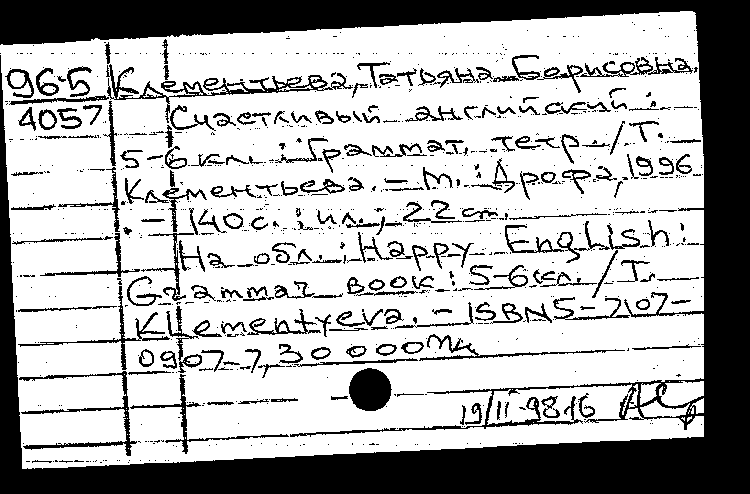 96-5 Клементьева, Татьяна Борисовна.
4057 Счастливый английский :
5-6 кл. : Граммат. тетр. / Т.
Клементьева. – М. : Дрофа, 1996
. – 140 с. : ил. ; 22 cm.
На обл. : Happy English :
Grammar book : 5-6 кл. / Т.
Klementyeva. – ISBN 5-7107-
0907-7, 30 000
19/II-98 16